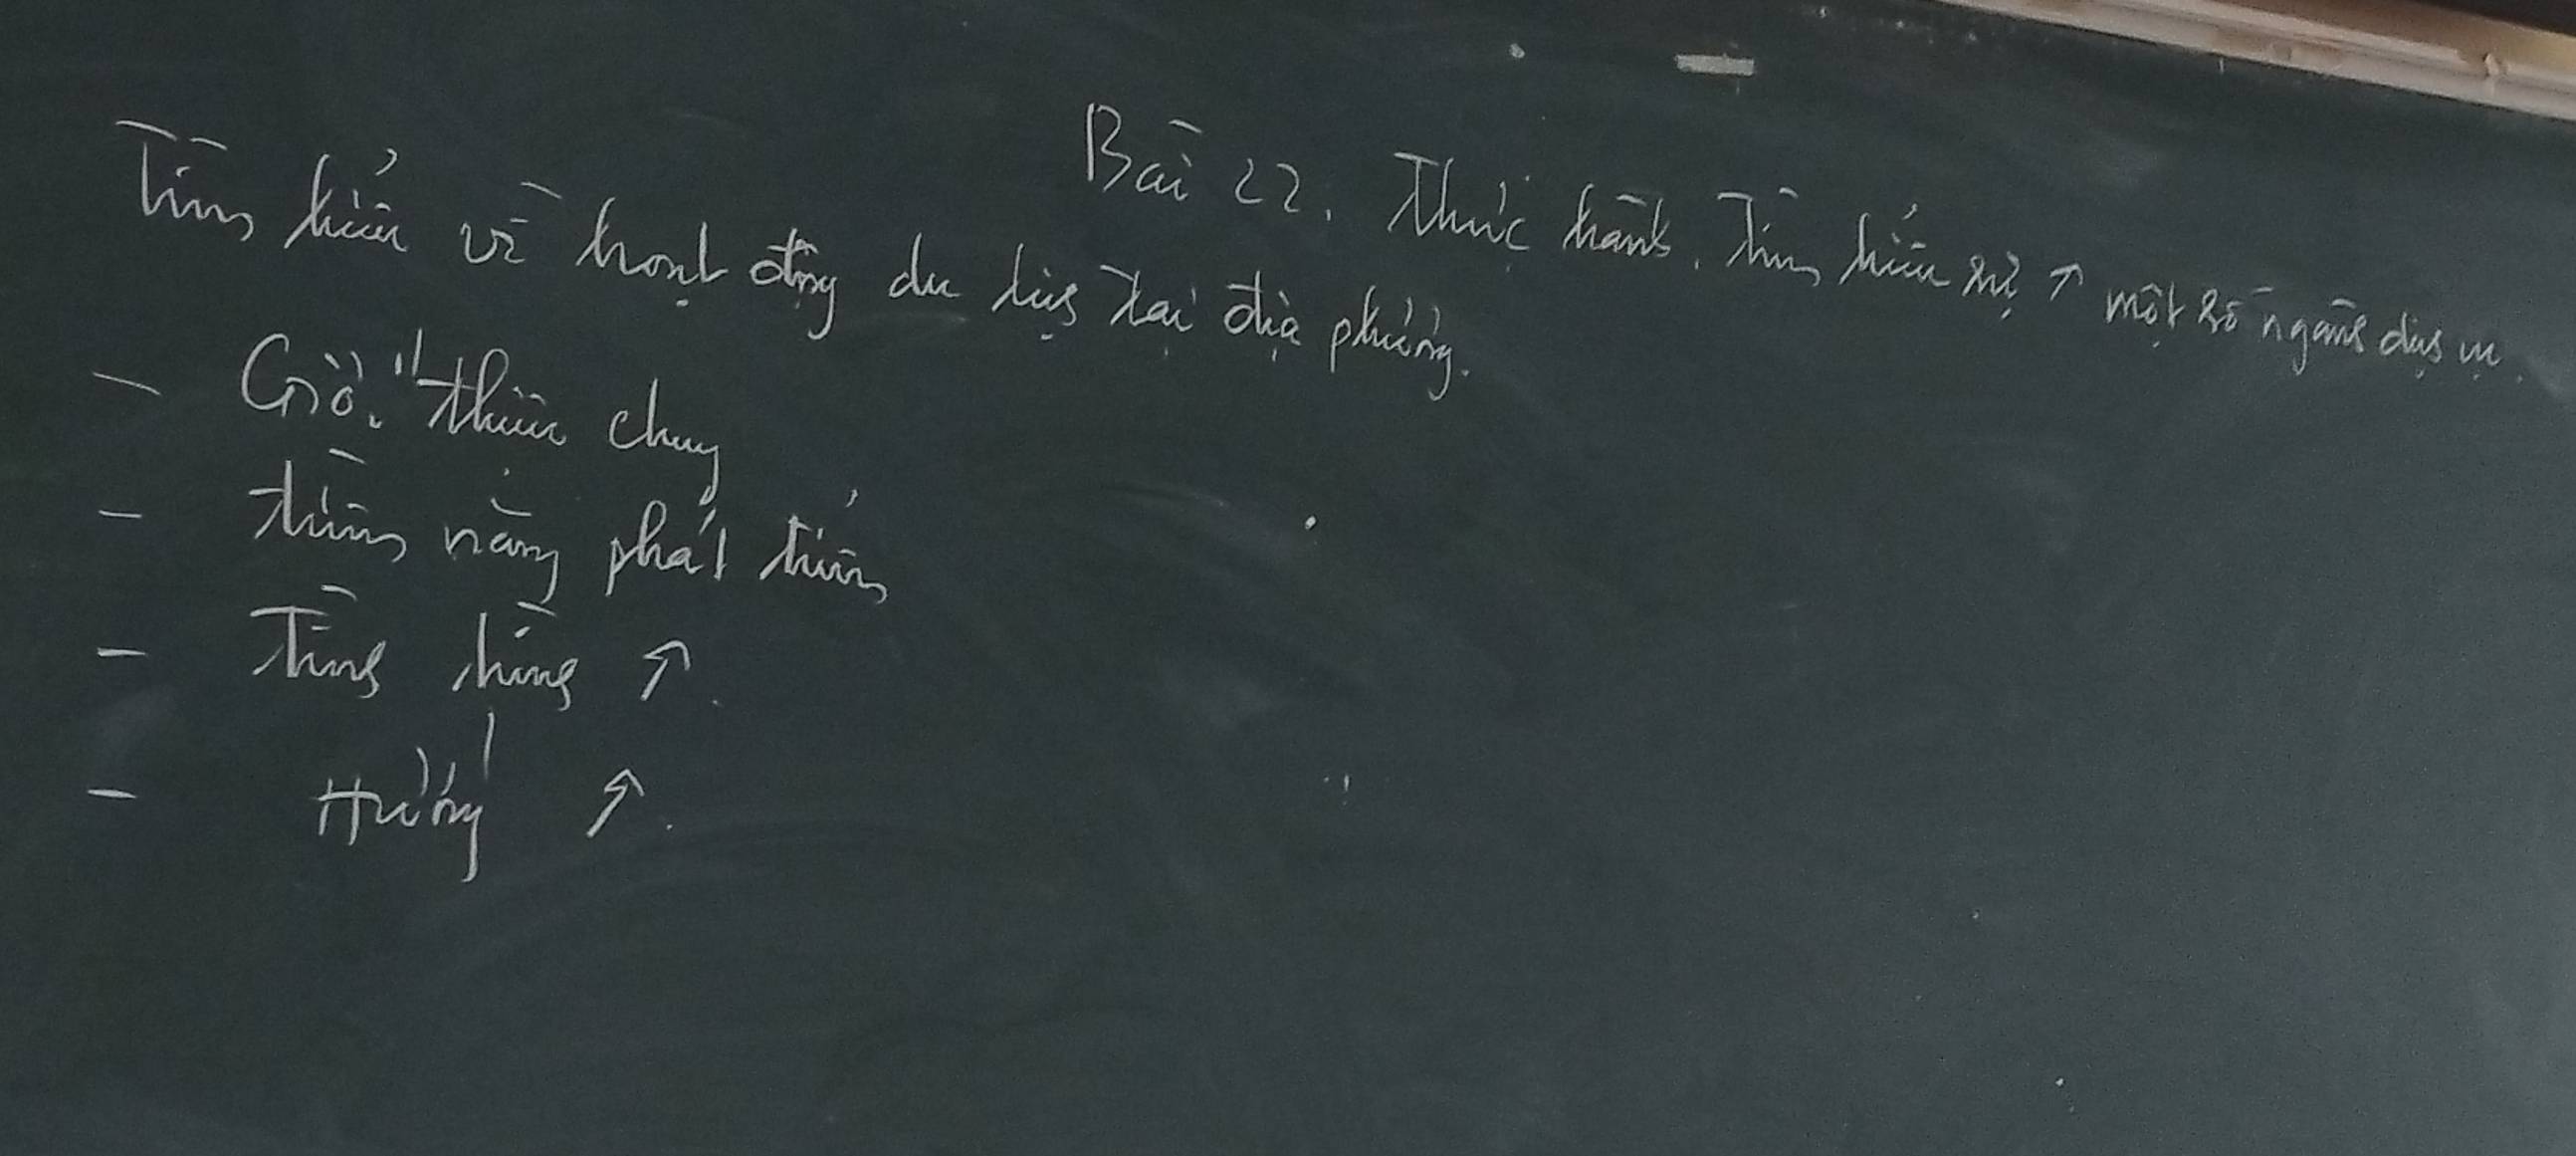 Bài 22. Thực hành. Tìm hiểu sự ↑ một số ngành dịch vụ.
Tìm hiểu về hoạt động du lịch tại địa phương.
- Giới thiệu chung
- Tiềm năng phát triển
- Tình hình ↑.
- Hướng ↑.